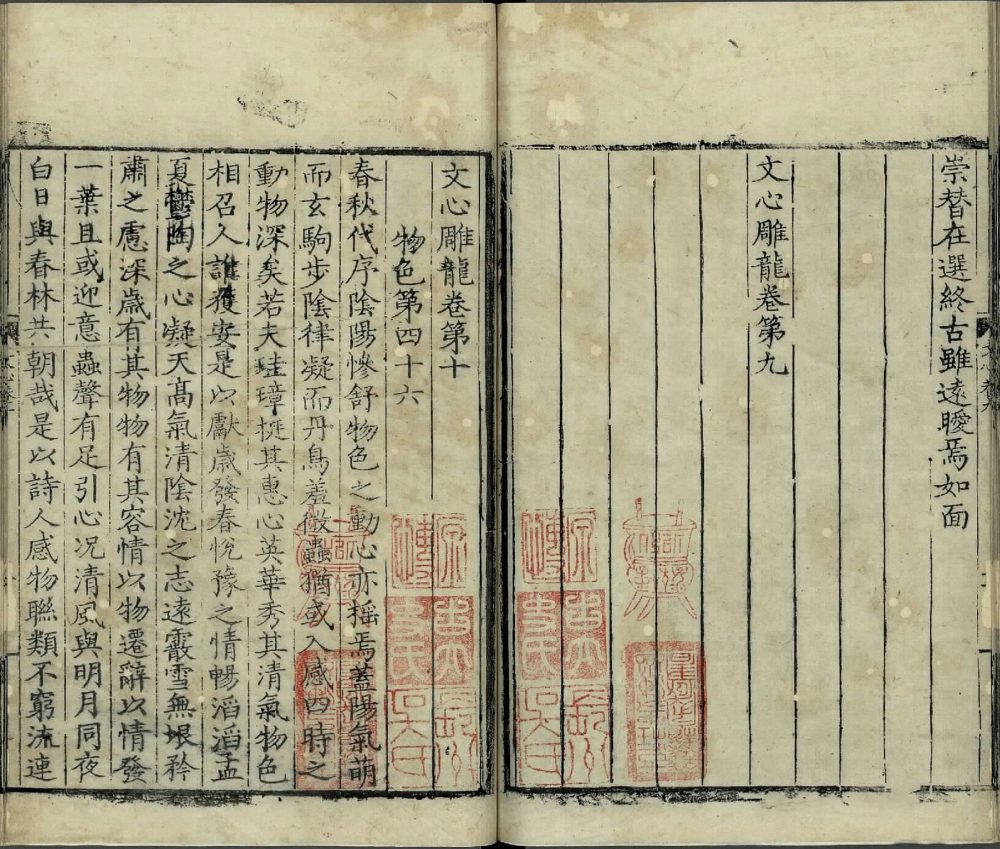 崇替在選終古雖遠曖焉如面
文心雕龍卷第九
文心雕龍卷第十
物色第四十六
春秋代序陰陽慘舒物色之動心亦搖焉蓋陽氣萌
而玄駒步陰律凝而丹鳥羞微蟲猶或入感四時之
動物深矣若夫珪璋挺其惠心英華秀其清氣物色
相召人誰獲安是以獻歲發春悅豫之情暢滔滔孟
夏鬱陶之心凝天高氣清陰沈之志遠霰雪無垠矜
肅之慮深歲有其物物有其容情以物遷辭以情發
一葉且或迎意蟲聲有足引心况清風與明月同夜
白日與春林共朝哉是以詩人感物聯類不窮流連